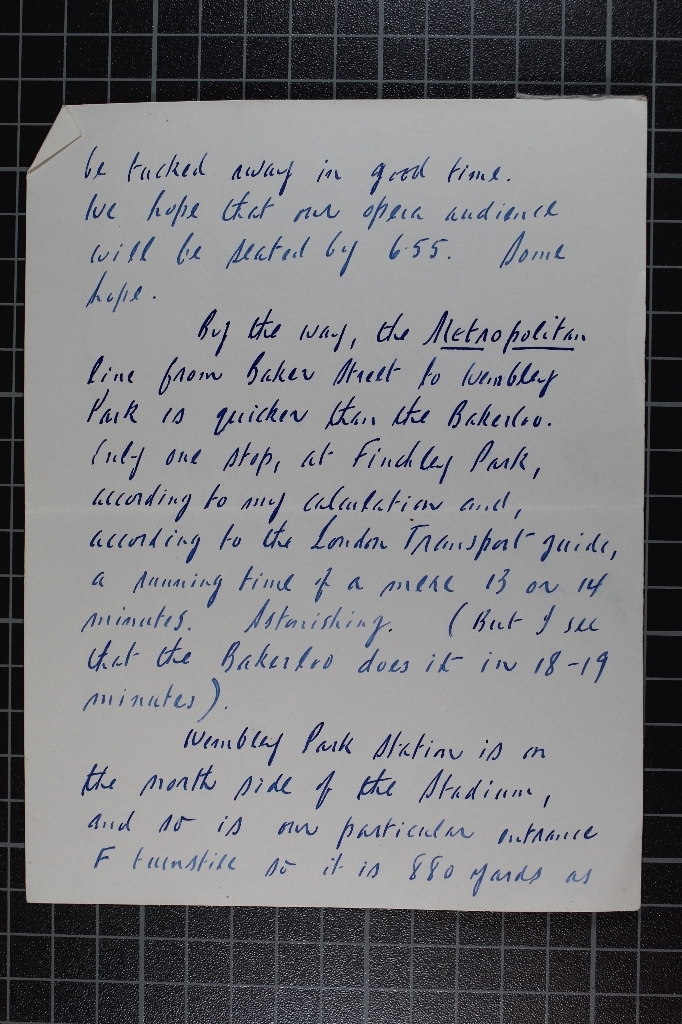 be tucked away in good time.
We hope that our opera audience
will be seated by 6.55. Some
hope.
By the way, the Metropolitan
line from Baker Street to Wembley
Park is quicker than the Bakerloo.
Only one stop, at Finchley Park,
according to my calculation and,
according to the London Transport guide,
a running time of a mere 13 or 14
minutes. Astonishing. (But I see
that the Bakerloo does it in 18-19
minutes).
Wembley Park Station is on
the north side of the Stadium,
and so is our particular entrance
F turnstile so it is 880 yards as